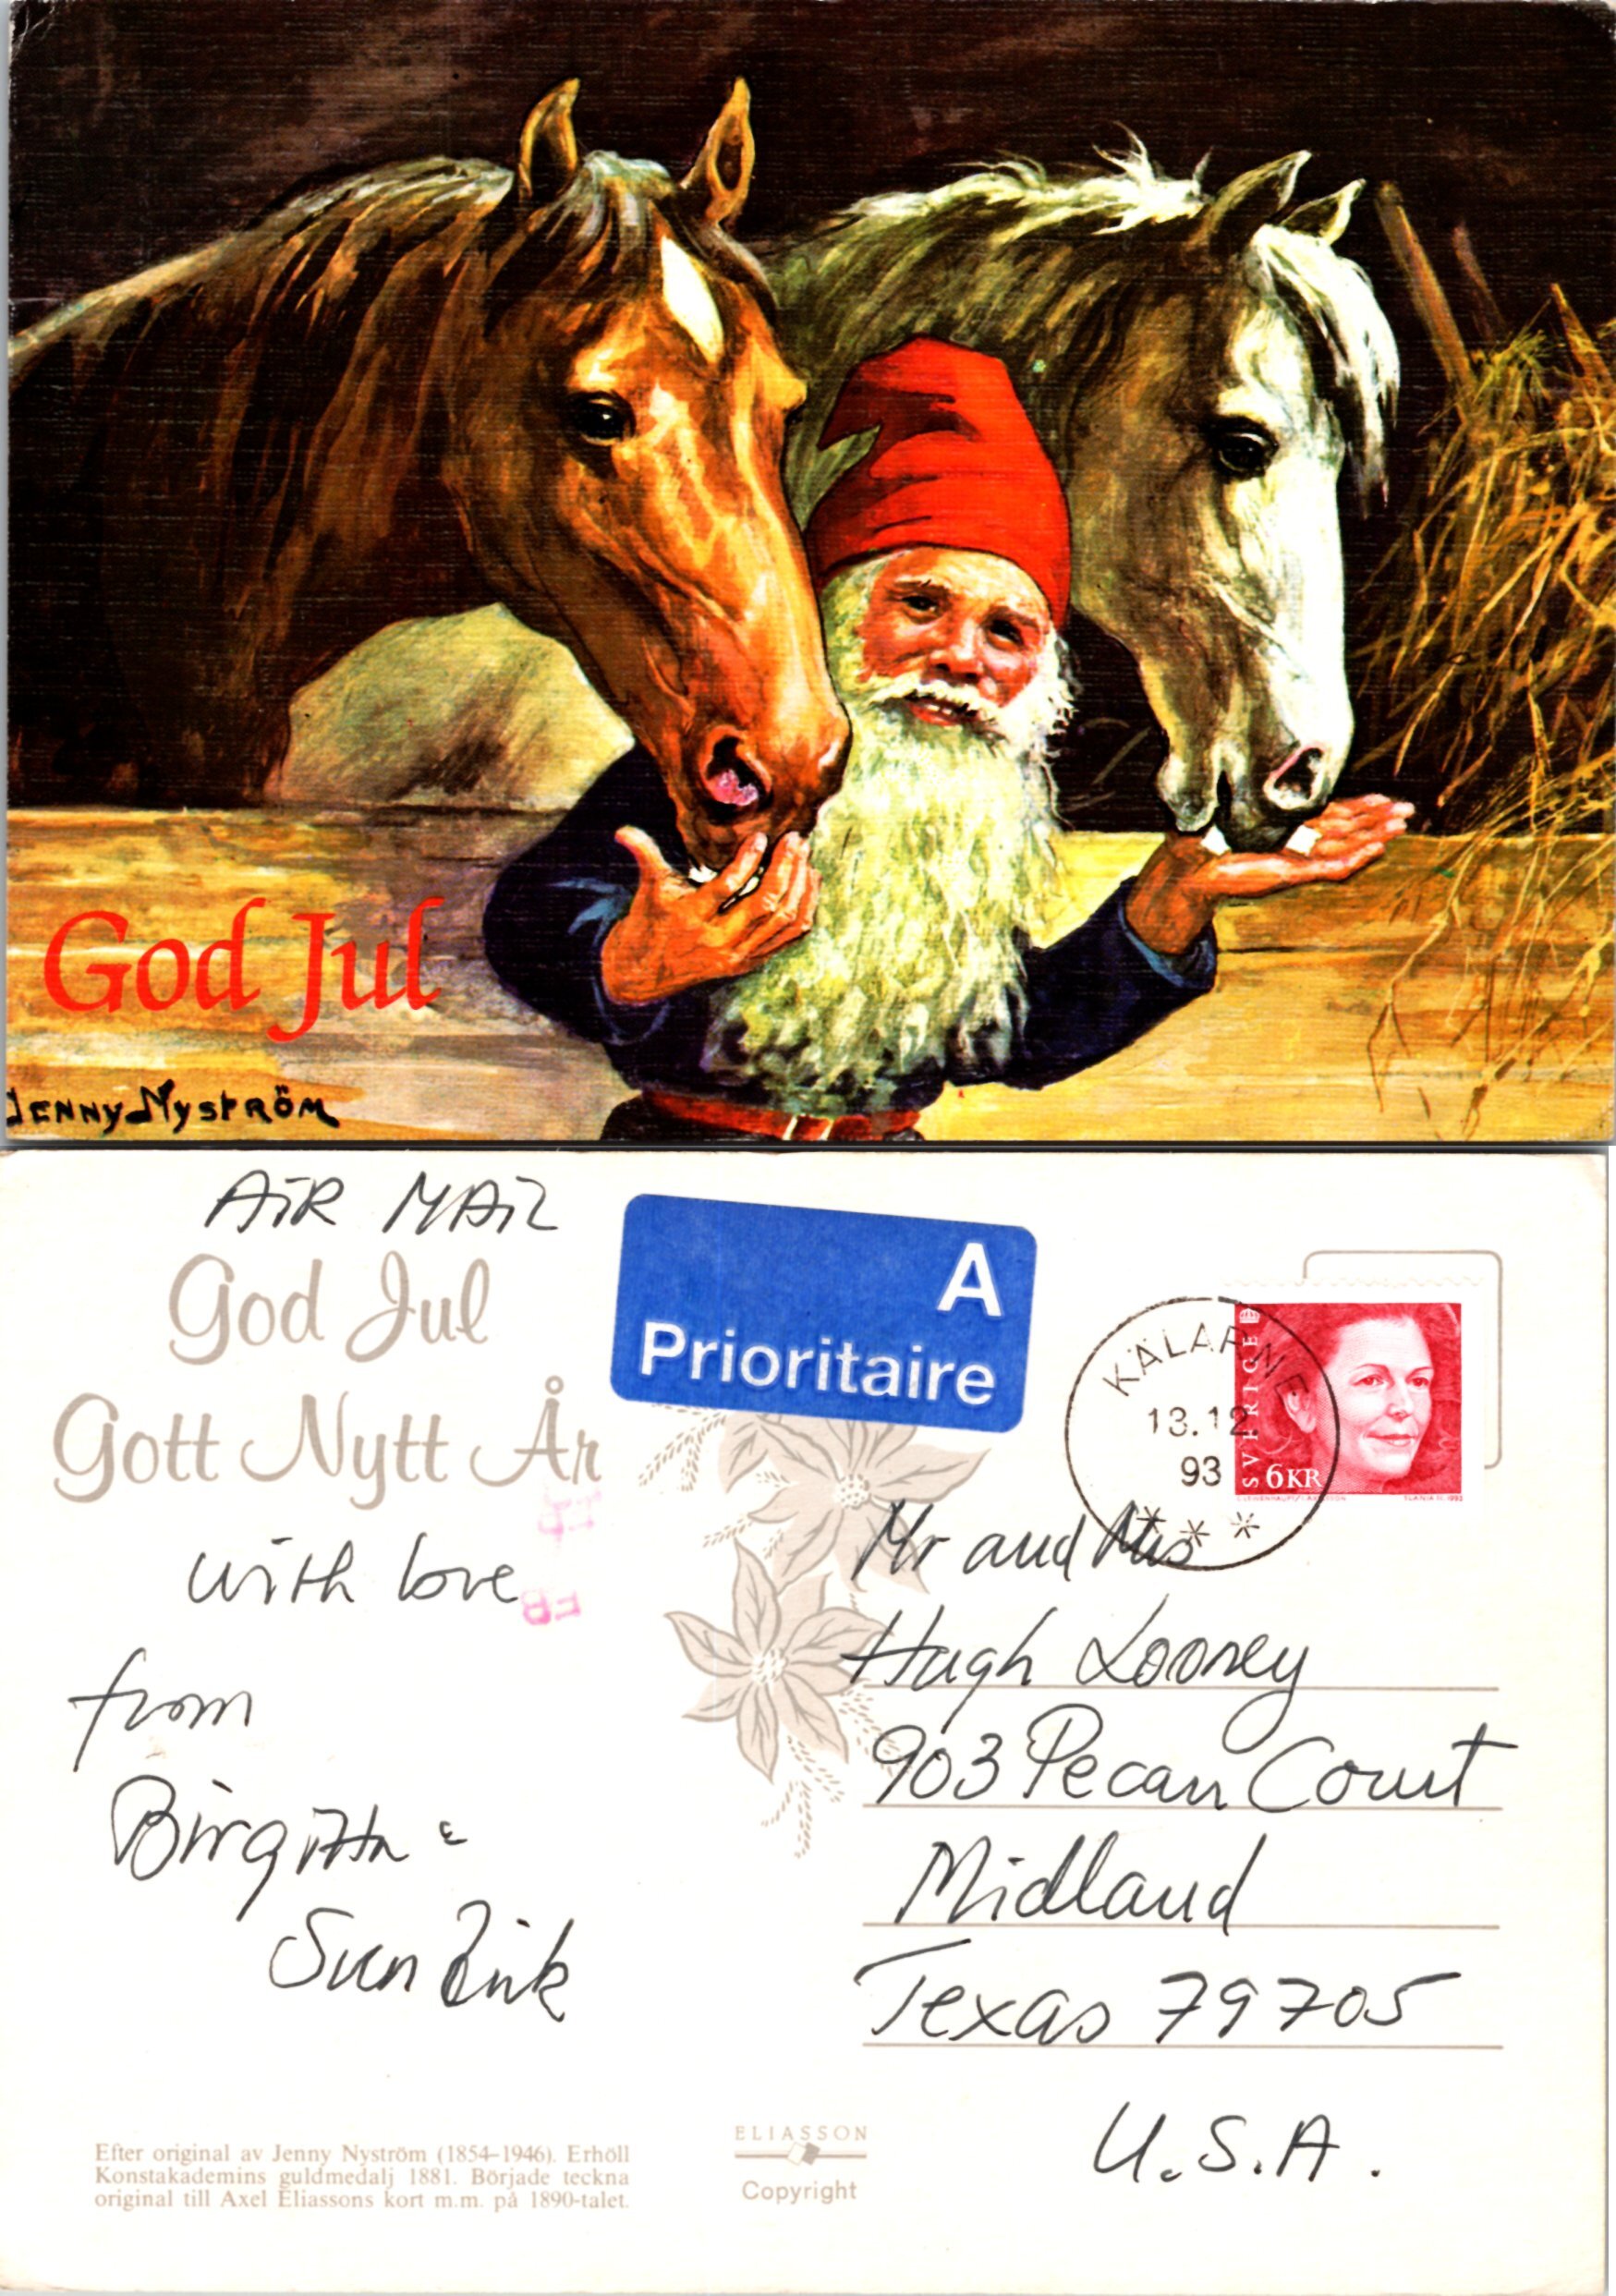 God Jul
Jenny Nyström
AiR MAiL
God Jul
Gott Nytt År
with love
from
Birgitta &
A
Prioritaire
KÄLARNE
13.12.
93
* * *
SVERIGE
6KR
Mr and Mrs
Hugh Looney
903 Pecan Court
Midland
Texas 79705
U.S.A.
Efter original av Jenny Nyström (1854–1946). Erhöll
Konstakademins guldmedalj 1881. Började teckna
original till Axel Eliassons kort m.m. på 1890-talet.
ELIASSON
Copyright